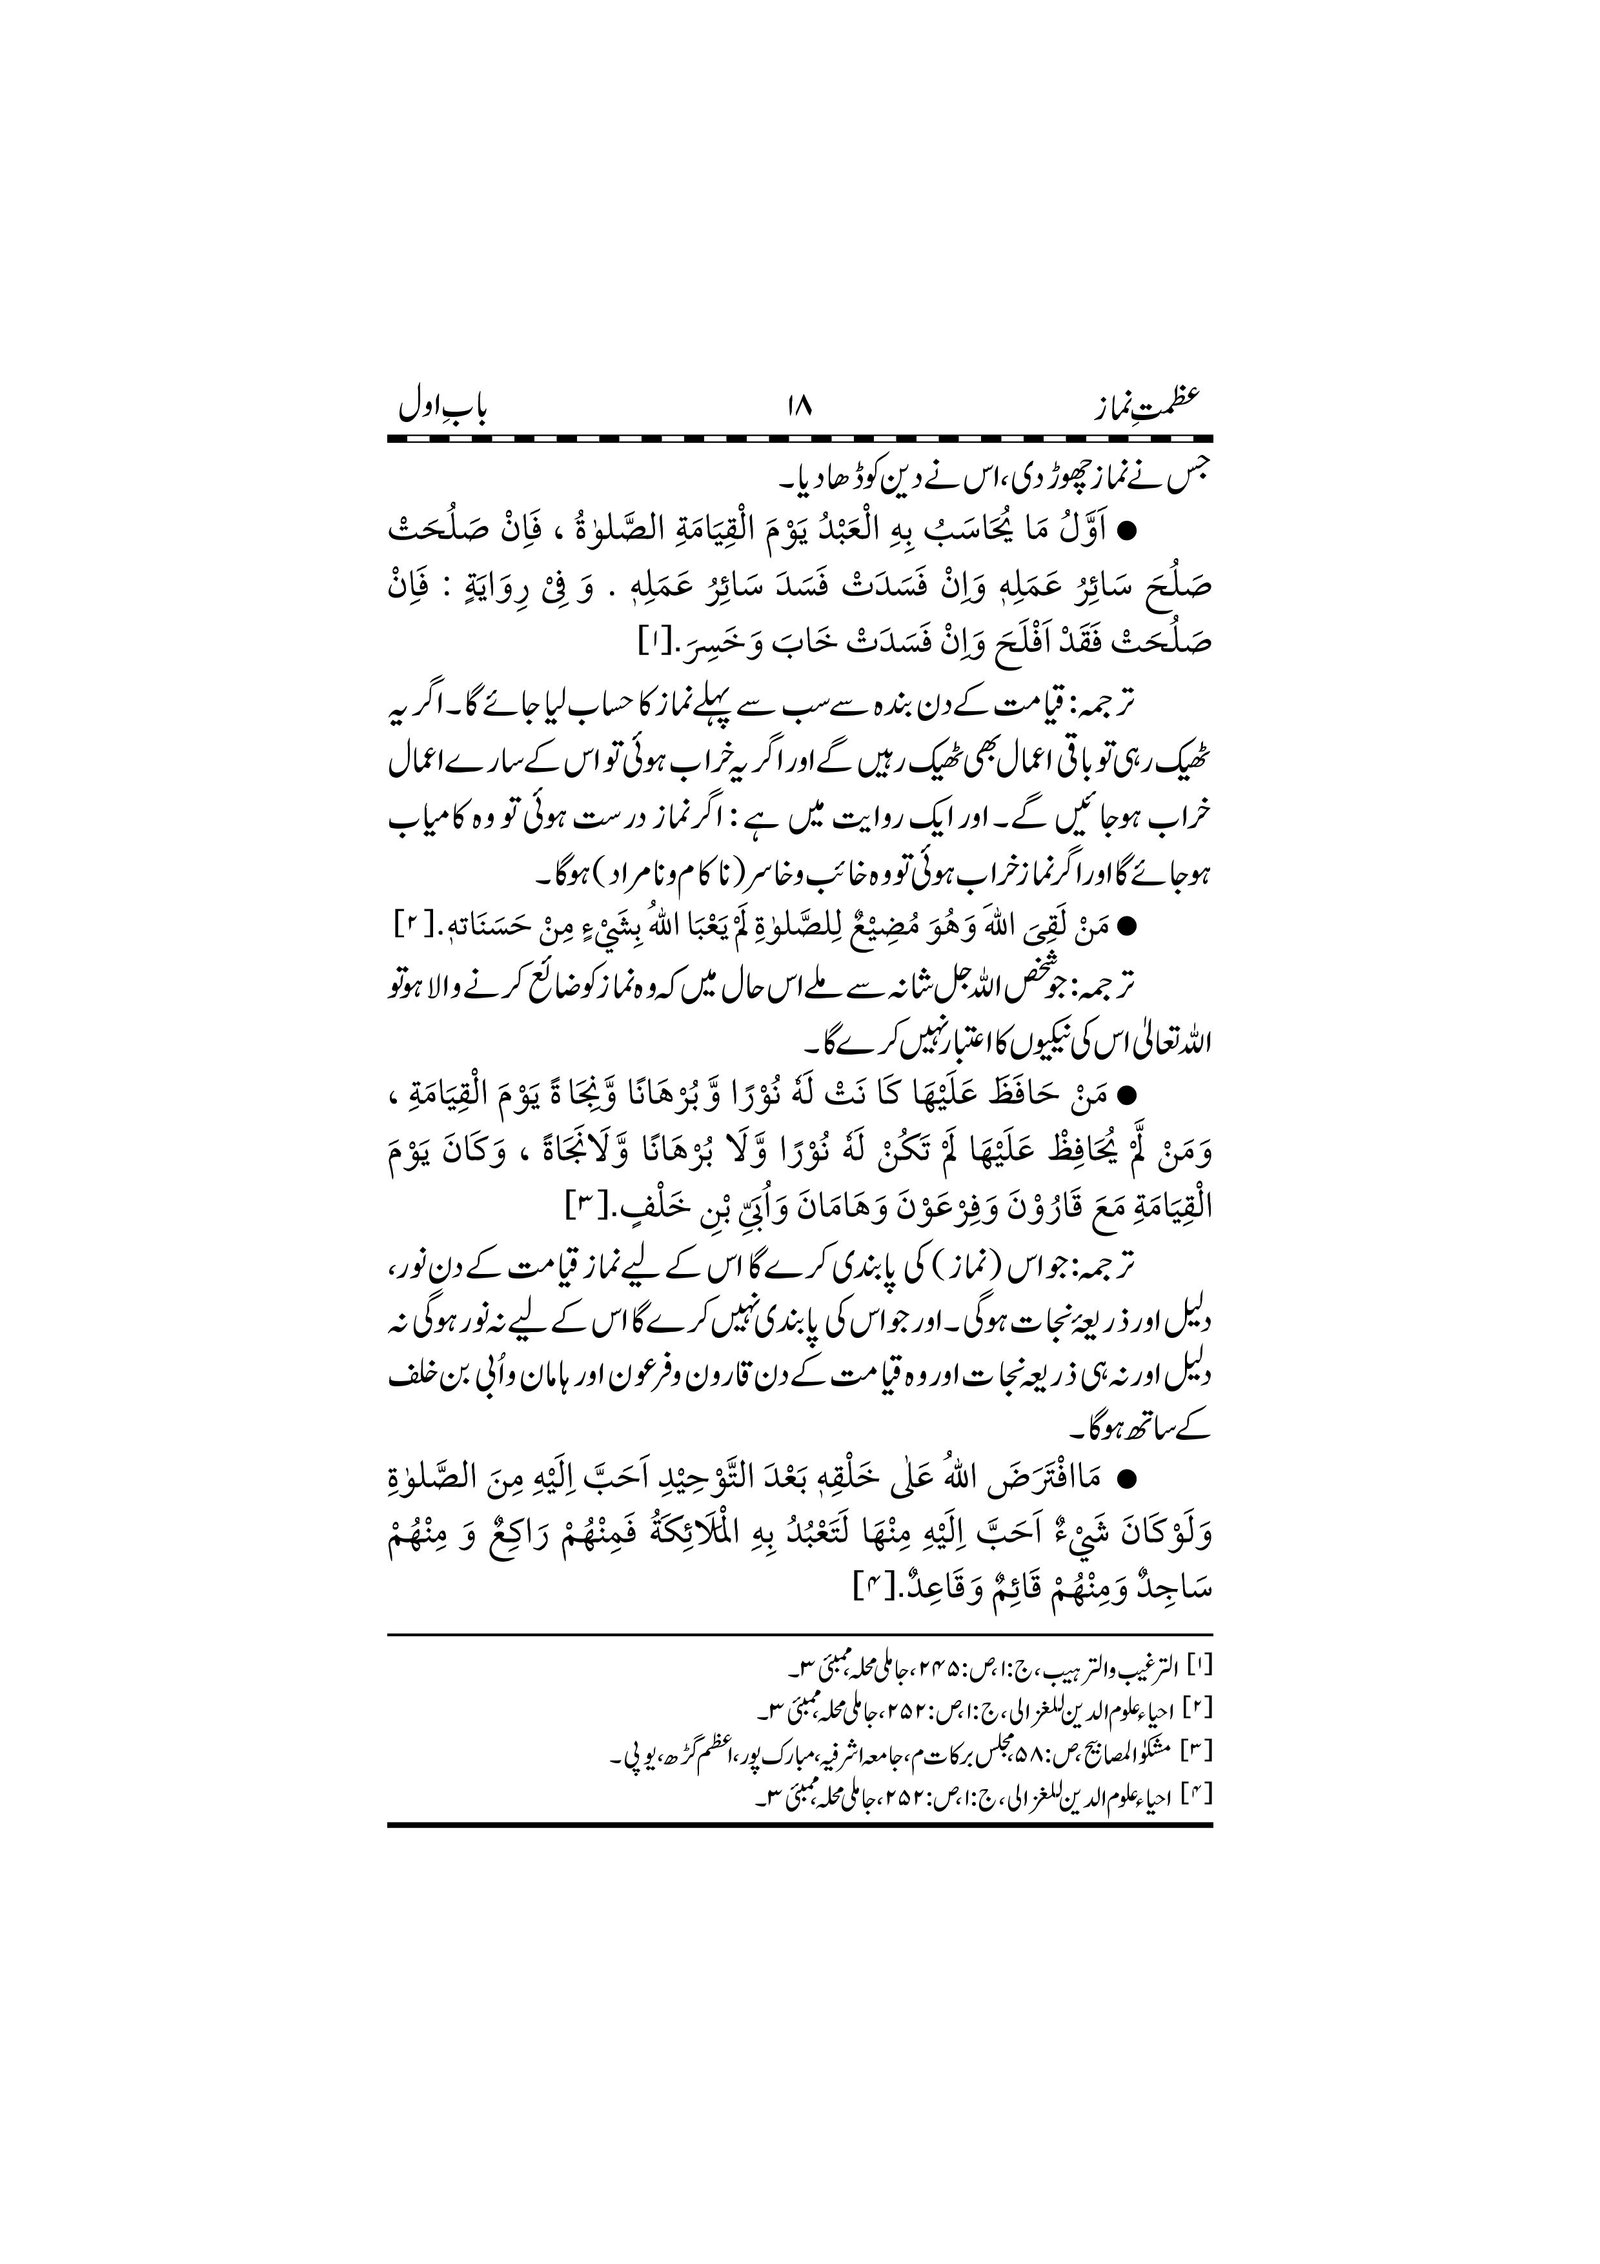 عظمتِ نماز ۱۸ بابِ اول
جس نے نماز چھوڑ دی، اس نے دین کو ڈھا دیا۔
● اَوَّلُ مَا يُحَاسَبُ بِهِ الْعَبْدُ يَوْمَ الْقِيَامَةِ الصَّلٰوةُ ، فَاِنْ صَلُحَتْ
صَلُحَ سَائِرُ عَمَلِهٖ وَاِنْ فَسَدَتْ فَسَدَ سَائِرُ عَمَلِهٖ . وَ فِىْ رِوَايَةٍ : فَاِنْ
صَلُحَتْ فَقَدْ اَفْلَحَ وَاِنْ فَسَدَتْ خَابَ وَخَسِرَ.[۱]
ترجمہ: قیامت کے دن بندہ سے سب سے پہلے نماز کا حساب لیا جائے گا۔ اگر یہ
ٹھیک رہی تو باقی اعمال بھی ٹھیک رہیں گے اور اگر یہ خراب ہوئی تو اس کے سارے اعمال
خراب ہو جائیں گے۔ اور ایک روایت میں ہے: اگر نماز درست ہوئی تو وہ کامیاب
ہو جائے گا اور اگر نماز خراب ہوئی تو وہ خائب و خاسر (ناکام و نامراد) ہوگا۔
● مَنْ لَقِىَ اللهَ وَهُوَ مُضِيْعٌ لِلصَّلٰوةِ لَمْ يَعْبَا اللهُ بِشَيْءٍ مِنْ حَسَنَاتهٖ.[۲]
ترجمہ: جو شخص اللہ جل شانہ سے ملے اس حال میں کہ وہ نماز کو ضائع کرنے والا ہو تو
اللہ تعالیٰ اس کی نیکیوں کا اعتبار نہیں کرے گا۔
● مَنْ حَافَظَ عَلَيْهَا كَانَتْ لَهٗ نُوْرًا وَّبُرْهَانًا وَّنِجَاةً يَوْمَ الْقِيَامَةِ ،
وَمَنْ لَّمْ يُحَافِظْ عَلَيْهَا لَمْ تَكُنْ لَهٗ نُوْرًا وَّلَا بُرْهَانًا وَّلَانَجَاةً ، وَكَانَ يَوْمَ
الْقِيَامَةِ مَعَ قَارُوْنَ وَفِرْعَوْنَ وَهَامَانَ وَاُبَىِّ بْنِ خَلْفٍ.[۳]
ترجمہ: جو اس (نماز) کی پابندی کرے گا اس کے لیے نماز قیامت کے دن نور،
دلیل اور ذریعۂ نجات ہوگی۔ اور جو اس کی پابندی نہیں کرے گا اس کے لیے نہ نور ہوگی نہ
دلیل اور نہ ہی ذریعہ نجات اور وہ قیامت کے دن قارون و فرعون اور ہامان و اُبی بن خلف
کے ساتھ ہوگا۔
● مَاافْتَرَضَ اللهُ عَلٰى خَلْقِهٖ بَعْدَ التَّوْحِيْدِ اَحَبَّ اِلَيْهِ مِنَ الصَّلٰوةِ
وَلَوْ كَانَ شَيْءٌ اَحَبَّ اِلَيْهِ مِنْهَا لَتَعْبُدُ بِهِ الْمَلَائِكَةُ فَمِنْهُمْ رَاكِعٌ وَ مِنْهُمْ
سَاجِدٌ وَمِنْهُمْ قَائِمٌ وَقَاعِدٌ.[۴]
[۱] الترغیب والترہیب، ج:۱، ص:۲۴۵، جاملی محلہ، ممبئی ۳۔
[۲] احیاء علوم الدین للغزالی، ج:۱، ص:۲۵۲، جاملی محلہ، ممبئی ۳۔
[۳] مشکوٰۃ المصابیح، ص:۵۸، مجلس برکات م، جامعہ اشرفیہ، مبارک پور، اعظم گڑھ، یوپی۔
[۴] احیاء علوم الدین للغزالی، ج:۱، ص:۲۵۲، جاملی محلہ، ممبئی ۳۔